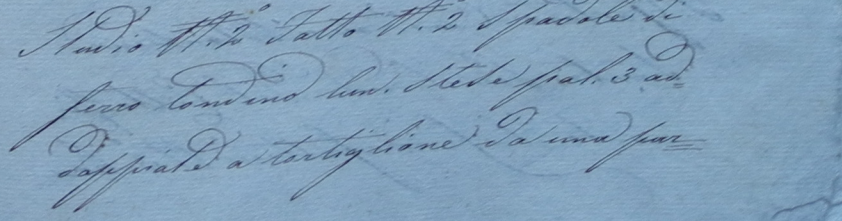 Studio N.° 2 Fatto N.° 2 Spadole di
ferro tondino lun. stese pal. 3 ad=
doppiate a tortiglione da una par=